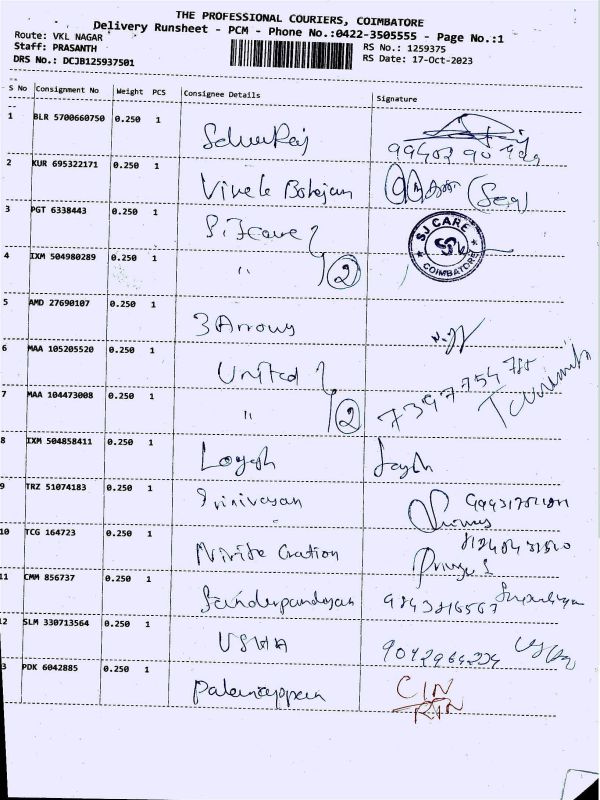 THE PROFESSIONAL COURIERS, COIMBATORE
Delivery Runsheet - PCM - Phone No.:0422-3505555 - Page No.:1
Route: VKL NAGAR
Staff: PRASANTH
RS No.: 1259375
DRS No.: DCJB125937501
RS Date: 17-Oct-2023
S No Consignment No Weight PCS Consignee Details Signature
1 BLR 5700660750 0.250 1
2 KUR 695322171 0.250 1
3 PGT 6338443 0.250 1
SJ CARE
COIMBATORE
4 IXM 504980289 0.250 1 " 2
5 AMD 27690107 0.250 1 3 Arrows
6 MAA 105205520 0.250 1 United
7 MAA 104473008 0.250 1 " 2
8 IXM 504858411 0.250 1 Logesh
9 TRZ 51074183 0.250 1 Srinivasan
10 TCG 164723 0.250 1
11 CMM 856737 0.250 1 9843816567
2 SLM 330713564 0.250 1 USHA
3 PDK 6042885 0.250 1 Palaniappan CIN
RTN